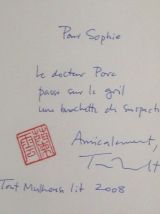 Pour Sophie
Le docteur Porc
passe sur le gril
une brochette de suspects
Amicalement,
Tout Mulhouse lit 2008